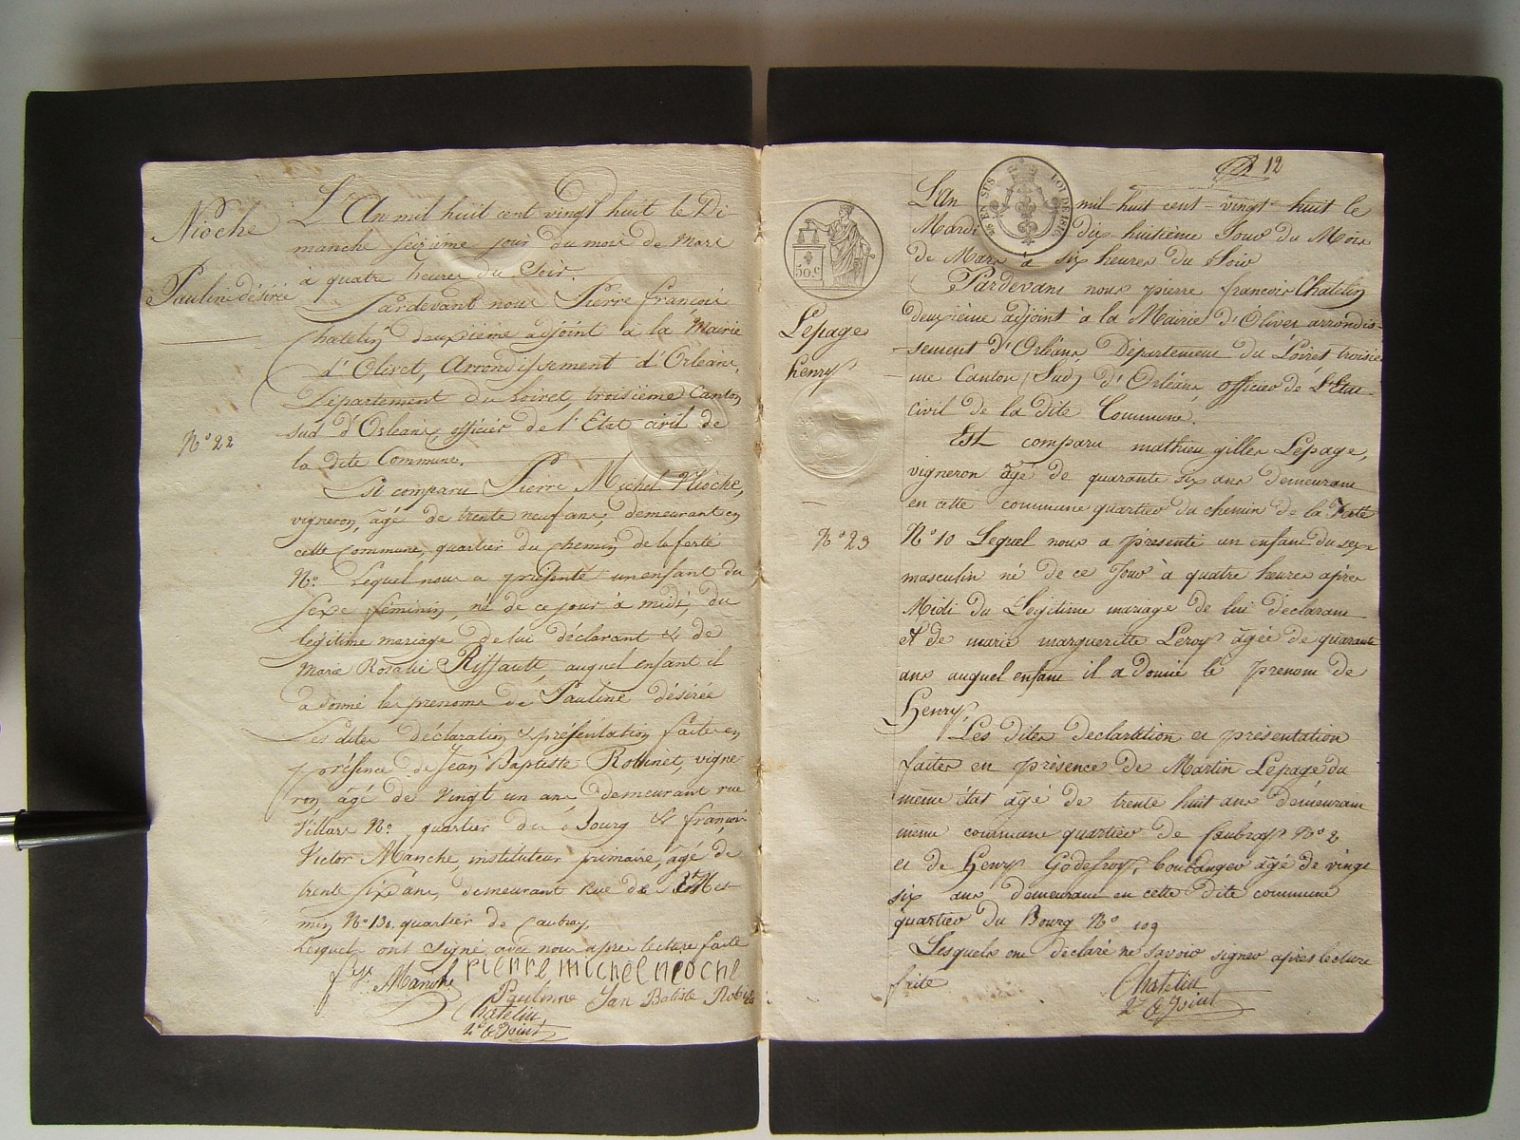 Nioche
Pauline désirée
N° 22
L'An mil huit cent vingt huit le Di
manche seizième jour du mois de Mars
à quatre heures du Soir.
Pardevant nous Pierre françois
Chatelin deuxième adjoint à la Mairie
d'Olivet, Arrondissement d'Orléans,
Département du Loiret, troisième Canton
sud d'Orleans, officier de l'Etat civil de
la dite Commune.
Est comparu Pierre Michel Nioche,
vigneron, âgé de trente neuf ans, demeurant en
cette Commune, quartier du chemin de la ferté
N°. Lequel nous a présenté un enfant du
sexe féminin, né de ce jour à midi, du
légitime mariage de lui déclarant & de
Marie Rosalie Riffault, auquel enfant il
a donné les prénoms de Pauline désirée
Les dites déclaration & présentation faites en
présence de Jean Baptiste Robinet, vigne
ron âgé de vingt un ans demeurant rue
Villars N°. quartier du Bourg & françois
Victor Manche, instituteur primaire, âgé de
trente six ans, demeurant Rue de St Mes
min N° 131 quartier de Caubray,
Lesquels ont signé avec nous après lecture faite
Manche pierre michel neoche
Paulinne Jan Batiste Robi
Chatelin
2e adjoint
12
50.c
LOI DE 1816
Lepage
henry
N° 23
L'An mil huit cent vingt huit le
Mardi dix huitième Jour du Mois
de Mars à six heures du Soir
Pardevant nous pierre francois Chatelin
deuxième adjoint à la Mairie d'Olivet arrondis-
sement d'Orléans, Département du Loiret troisie
me Canton (Sud) d'Orléans officier de L'Etat
civil de la dite Commune.
Est comparu mathieu gilles Lepage,
vigneron âgé de quarante six ans demeurant
en cette commune quartier du chemin de la Ferté
N° 10 Lequel nous a présenté un enfant du sexe
masculin né de ce Jour à quatre heures après
Midi du Légitime mariage de lui déclarant
Et de marie margueritte Leroy âgée de quarante
ans auquel enfant il a donné le prenom de
Henry
Les dites declartition et présentation
faites en présence de Martin Lepage du
même état âgé de trente huit ans demeurant
même commune quartier de Caubray N° 2
et de Henry Godefroy, boulanger âgé de vingt
six ans demeurant en cette dite commune
quartier du Bourg N° 109
Lesquels ont déclaré ne savoir signer après lecture
faite
Chatelin
2e adjoint